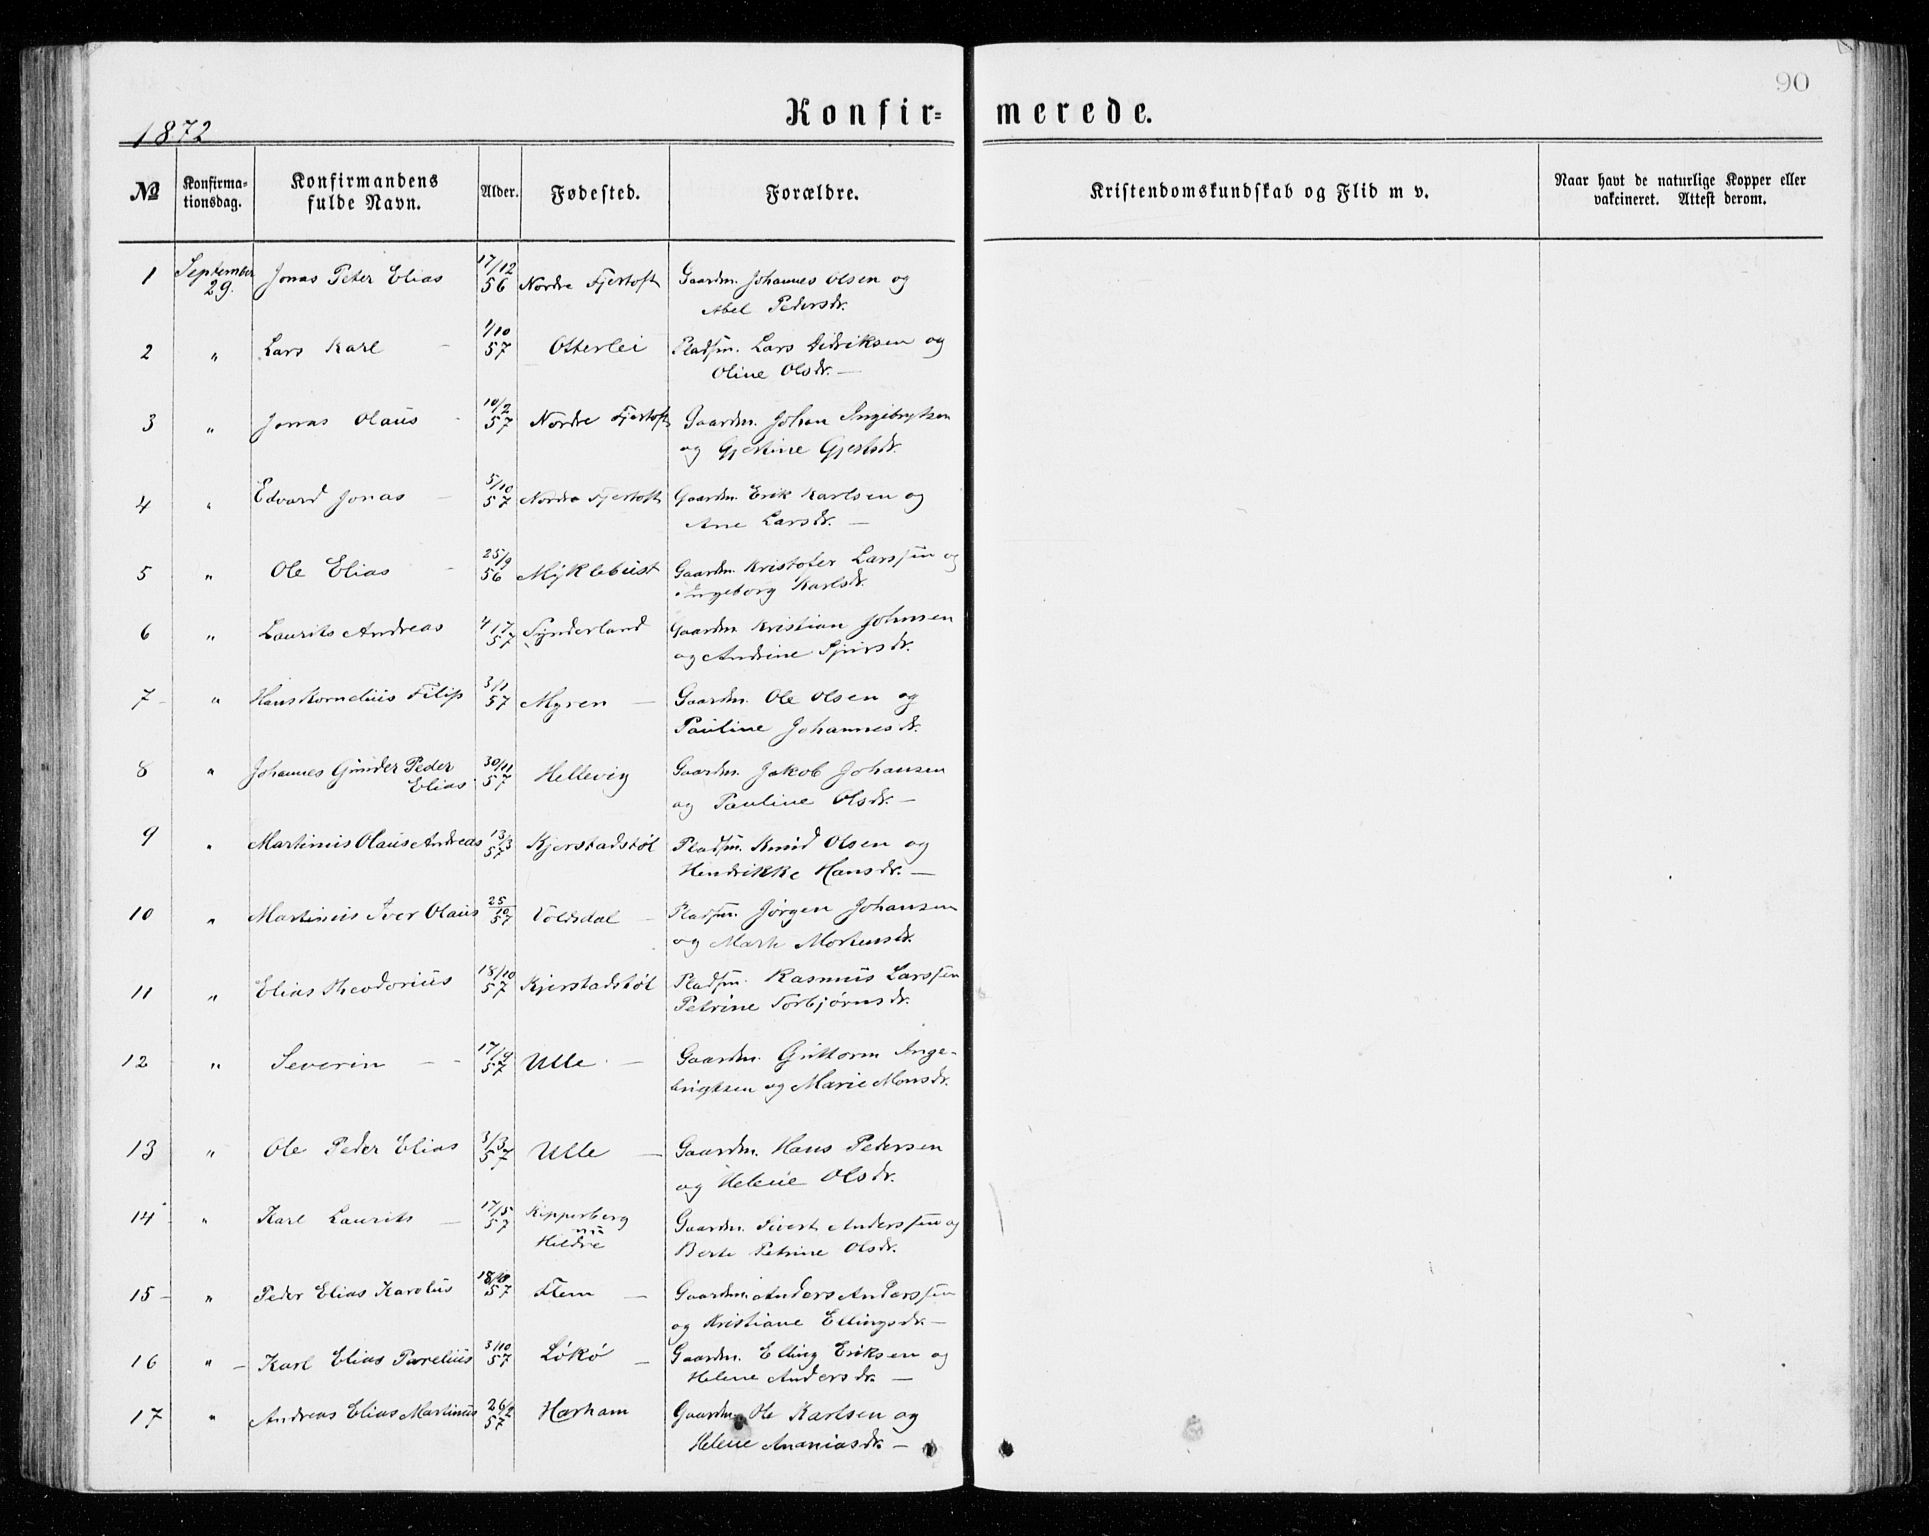 90
Konfir=
merede.
1872
No
Konfirma-
tionsdag.
Konfirmandens
fulde Navn.
Alder.
Fødested.
Forældre.
Kristendomskundskab og Flid m v.
Naar havt de naturlige Kopper eller
vakcineret. Attest derom.
1 September 29. Jonas Peter Elias 17/12 56 Nordre Fjertoft Gaardm. Johannes Olsen og
Abel Pedersdr.
2 " Lars Karl 1/10 57 Otterlei Pladsm. Lars Didriksen og
Oline Olsdr. —
3 " Jonas Olaus 10/2 57 Nordre Fjertoft Gaardm. Johan Ingebrigtsen
og Gjertine Gjertsdr.
4 " Edvard Jonas 5/10 57 Nordre Fjertoft Gaardm. Erik Karlsen og
Ane Larsdr. —
5 " Ole Elias 25/9 56 Myklebust Gaardm. Kristofer Larssen og
Ingeborg Karlsdr.
6 " Laurits Andreas 4/7 57 Synderland Gaardm. Kristian Johnsen
og Andrine Sjursdr.
7 " Hans Kornelius Filip 3/1 57 Myren — Gaardm. Ole Olsen og
Pauline Johannesdr.
8 " Johannes Gunder Peder
Elias 30/11 57 Hellevig Gaardm. Jakob Johansen
og Pauline Olsdr. —
9 " Martinus Olaus Andreas 13/3 57 Kjerstadstøl Pladsm. Knud Olsen og
Hendrikke Hansdr. —
10 " Martinus Iver Olaus 25/10 57 Voldsdal — Pladsm. Jørgen Johansen
og Marte Mortensdr.
11 " Elias Theodorius 18/10 57 Kjerstadstøl Pladsm. Rasmus Larssen
Petrine Torbjørnsdr.
12 " Severin — 17/9 57 Ulle — Gaardm. Guttorm Inge-
brigtsen og Marie Monsdr.
13 " Ole Peder Elias 3/3 57 Ulle — Gaardm. Hans Pedersen
og Helene Olsdr.
14 " Karl Laurits — 17/5 57 Kipperberg
nu
Hildre Gaardm. Sivert Anderssen og
Berte Petrine Olsdr.
15 " Peder Elias Karolus 57 Flem — Gaardm. Anders Anderssen
og Kristiane Ellingsdr. —
16 " Karl Elias Parelius 3/10 57 Løkø — Gaardm. Elling Eriksen og
Helene Andersdr. —
17 " Andreas Elias Martinus 26/2 57 Harham Gaardm. Ole Karlsen og
Helene Ananiasdr. —